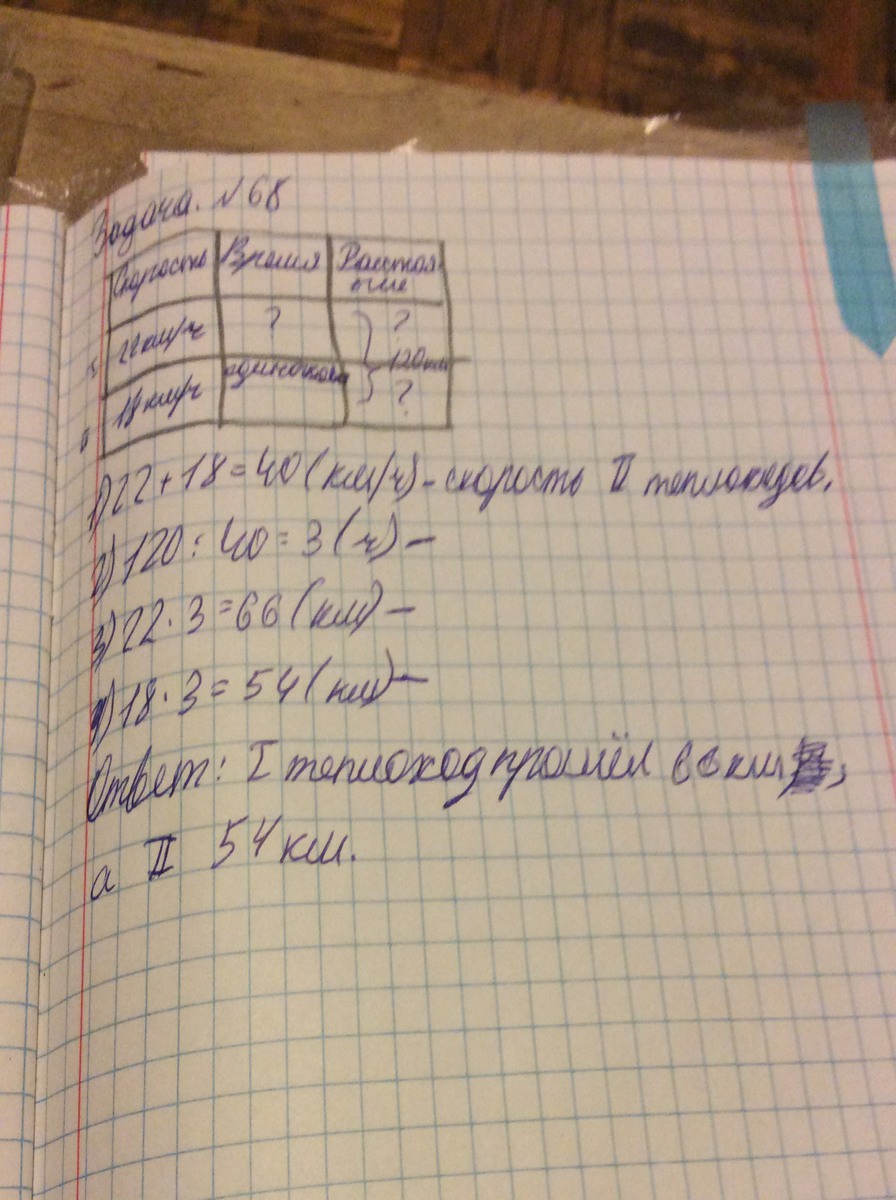 Задача. №68
Скорость Время Расстоя-
ние
22 км/ч ? ?
120 км
одинаков
18 км/ч ?
1) 22 + 18 = 40 (км/ч) - скорость II теплоходов.
2) 120 : 40 = 3 (ч) -
3) 22 · 3 = 66 (км) -
4) 18 · 3 = 54 (км) -
Ответ: I теплоход прошёл 66 км,
а II 54 км.